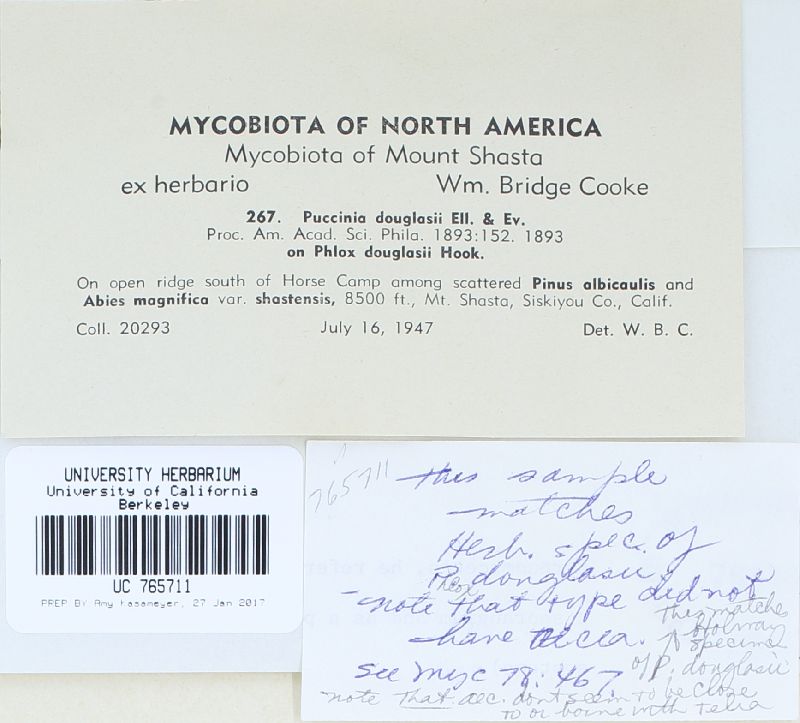 MYCOBIOTA OF NORTH AMERICA
Mycobiota of Mount Shasta
ex herbario Wm. Bridge Cooke
267. Puccinia douglasii Ell. & Ev.
Proc. Am. Acad. Sci. Phila. 1893:152. 1893
on Phlox douglasii Hook.
On open ridge south of Horse Camp among scattered Pinus albicaulis and
Abies magnifica var. shastensis, 8500 ft., Mt. Shasta, Siskiyou Co., Calif.
Coll. 20293 July 16, 1947 Det. W. B. C.
UNIVERSITY HERBARIUM
University of California
Berkeley
UC 765711
PREP BY Amy Kasameyer, 27 Jan 2017
765711
this sample
matches
Herb. spec. of
Phlox douglasii
note that type did not
have aecia.
see Myc 78:467
This matches
Holway
specimen
of P. douglasii
note that aec. dont seem to be close
to or borne with telia